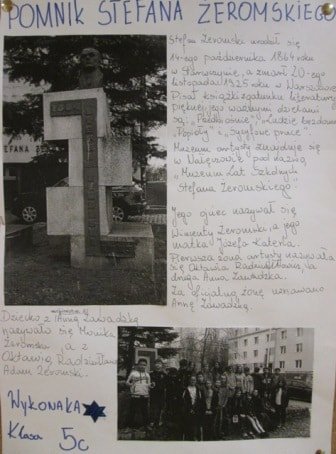 POMNIK STEFANA ŻEROMSKIEGO
Stefan Żeromski urodził się
14-ego października 1864 roku
w Strawczynie, a zmarł 20-ego
listopada 1925 roku w Warszawie.
Pisał książki gatunku literatury
pięknej jego ważnymi dziełami
są: „Przedwiośnie" „Ludzie bezdomni"
„Popioły" i „Syzyfowe prace".
Muzeum artysty znajduje się
w pod nazwą
„Muzeum Lat Szkolnych
Stefana Żeromskiego"
Jego ojciec nazywał się
Wincenty Żeromski, a jego
matka Józefa Katerla.
Pierwsza żona artysty nazywała
się Oktawia Radziwiłłowicz, a
druga Anna Zawadzka.
Za oficjalną żonę uznawano
Annę Zawadzką.
Dziecko z Anną Zawadzką
nazywało się Monika
Żeromska a z
Oktawią
Adam Żeromski.
WYKONAŁA
Klasa 5c